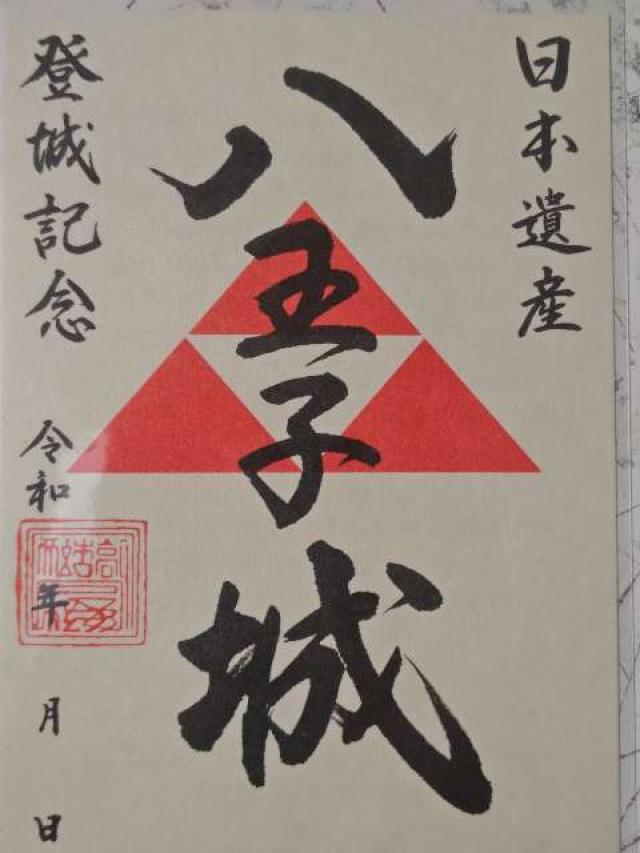 日本遺産
八王子城
登城記念
令和 年 月 日